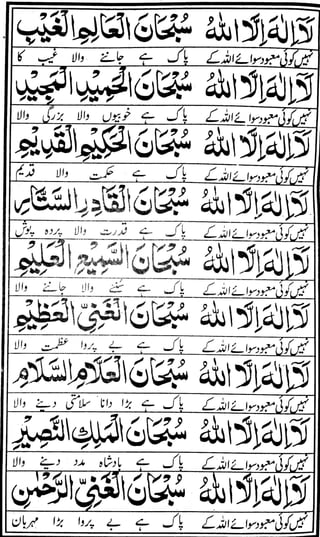 لَآ اِلٰهَ اِلَّا اللهُ سُبْحَانَ الْعَالِمِ الْغَيْبِ
نہیں کوئی معبود سوائے اللہ کے پاک ہے جاننے والا غیب کا
لَآ اِلٰهَ اِلَّا اللهُ سُبْحَانَ الْحَمِيْدِ الْمَجِيْدِ
نہیں کوئی معبود سوائے اللہ کے پاک ہے خوبیوں والا بزرگی والا
لَآ اِلٰهَ اِلَّا اللهُ سُبْحَانَ الْحَكِيْمِ الْقَدِيْمِ
نہیں کوئی معبود سوائے اللہ کے پاک ہے حکمت والا قدیم
لَآ اِلٰهَ اِلَّا اللهُ سُبْحَانَ الْقَادِرِ السَّتَّارِ
نہیں کوئی معبود سوائے اللہ کے پاک ہے قدرت والا پردہ پوش
لَآ اِلٰهَ اِلَّا اللهُ سُبْحَانَ السَّمِيْعِ الْعَلِيْمِ
نہیں کوئی معبود سوائے اللہ کے پاک ہے سننے والا جاننے والا
لَآ اِلٰهَ اِلَّا اللهُ سُبْحَانَ الْغَنِيِّ الْعَظِيْمِ
نہیں کوئی معبود سوائے اللہ کے پاک ہے بے پروا عظمت والا
لَآ اِلٰهَ اِلَّا اللهُ سُبْحَانَ الْعَلَّامِ السَّلَامِ
نہیں کوئی معبود سوائے اللہ کے پاک ہے بڑا دانا سلامتی دینے والا
لَآ اِلٰهَ اِلَّا اللهُ سُبْحَانَ الْمَلِكِ النَّصِيْرِ
نہیں کوئی معبود سوائے اللہ کے پاک ہے بادشاہ مدد دینے والا
لَآ اِلٰهَ اِلَّا اللهُ سُبْحَانَ الْغَنِيِّ الرَّحْمٰنِ
نہیں کوئی معبود سوائے اللہ کے پاک ہے بے پروا بڑا مہربان